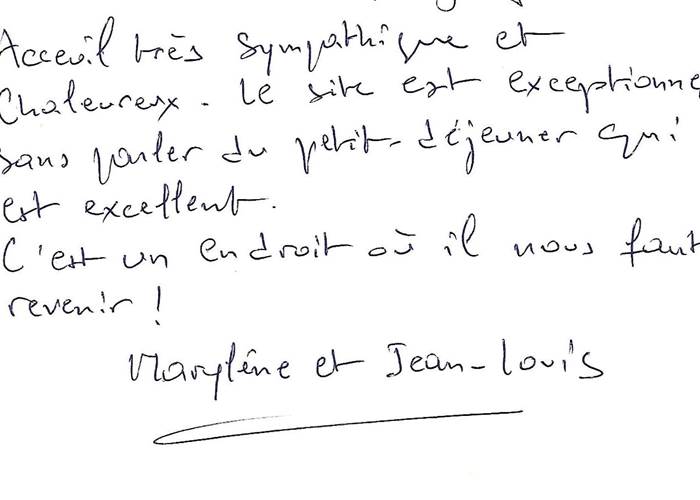 Acceuil très sympathique et
Chaleureux. Le site est exceptionne
sans parler du petit-déjeuner qui
est excellent.
C'est un endroit où il nous faut
revenir !
Marylène et Jean-Louis